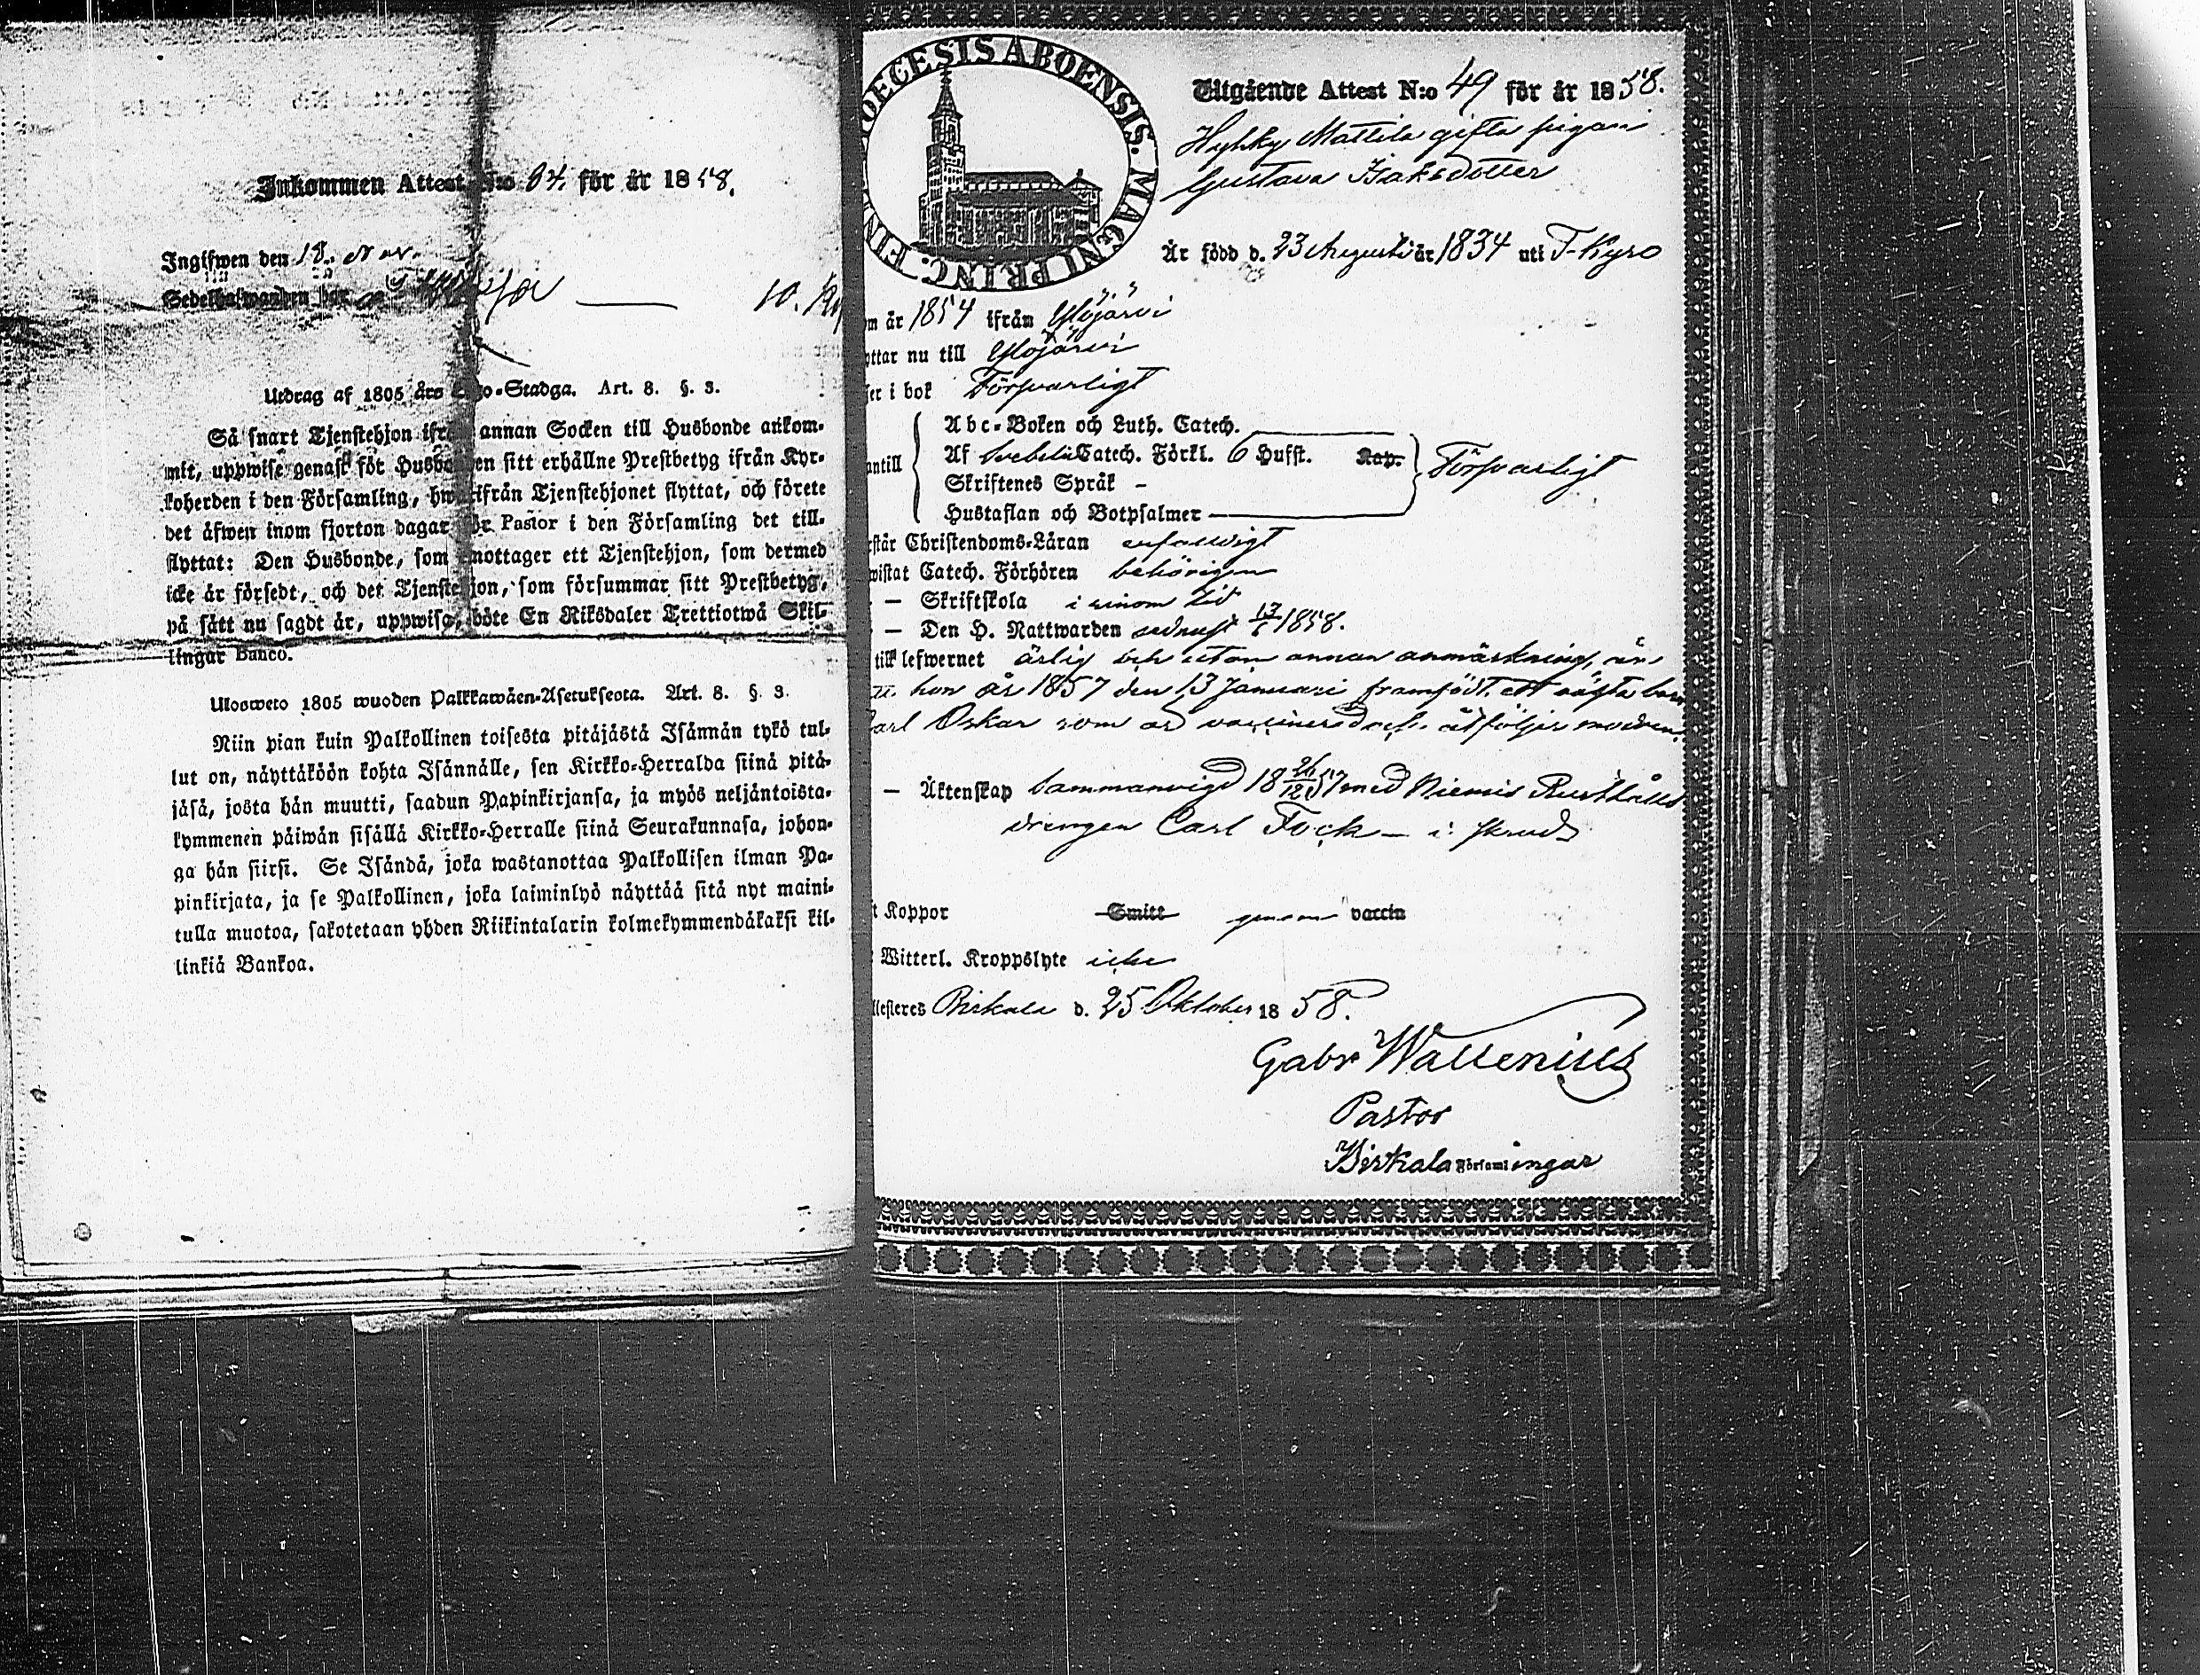 Inkommen Attest N:o 64. för år 1858.
Ingifwen den 18. Nov.
Sedelhafwanden bär
10.
Utdrag af 1805 års Lego-Stadga. Art. 8. §. 3.
Så snart Tjenstehjon ifrån annan Socken till Husbonde ankom-
mit, uppwise genast för Husbonden sitt erhållne Prestbetyg ifrån Kyr-
koherden i den Församling, hwarifrån Tjenstehjonet flyttat, och förete
det äfwen inom fjorton dagar för Pastor i den Församling det till-
flyttat: Den Husbonde, som emottager ett Tjenstehjon, som dermed
icke är försedt, och det Tjenstehjon, som försummar sitt Prestbetyg,
på sätt nu sagdt är, uppwisa, böte En Riksdaler Trettiotwå Skil-
lingar Banco.
Ulosweto 1805 wuoden Palkkawäen-Asetuksesta. Art. 8. §. 3.
Niin pian kuin Palkollinen toisesta pitäjästä Isännän tykö tul-
lut on, näyttäköön kohta Isännälle, sen Kirkko-Herralda siinä pitä-
jäsä, josta hän muutti, saadun Papinkirjansa, ja myös neljäntoista-
kymmenen päiwän sisällä Kirkko-Herralle siinä Seurakunnasa, johon-
ga hän siirsi. Se Isändä, joka wastanottaa Palkollisen ilman Pa-
pinkirjata, ja se Palkollinen, joka laiminlyö näyttää sitä nyt maini-
tulla muotoa, sakotetaan yhden Riikintalarin kolmekymmendäkaksi kil-
linkiä Bankoa.
DIOECESIS ABOENSIS. MAGNI PRINC. FIN
Utgående Attest N:o 49 för år 1858.
Hyhky Mattila gifta pigan
Gustava Isaksdotter
Är född d. 23 Augusti år 1834 uti T-Kyro
om år 1854 ifrån Ylöjärvi
yttar nu till Ylöjärvi
ser i bok Försvarligt
Abc-Boken och Luth. Catech.
antill Af Svebelii Catech. Förkl. 6 Hufst. Kap. Försvarligt
Skriftenes Språk -
Hustaflan och Botpsalmer
rstår Christendoms-Läran enfaldigt
wistat Catech. Förhören behörigen
- Skriftskola i sinom tid
- Den H. Nattwarden sednast 13/6 1858.
till lefwernet ärlig och utan annan anmärkning, än
hon år 1857 den 13 Januari framfödt ett oägta barn
Carl Oskar som är vaccinerad och åtföljer modren.
- Äktenskap sammanvigd 18 26/12 57 med Niemis Rusthålls
drengen Carl Fock - i
t Koppor Smitt genom vaccin
Witterl. Kroppslyte icke
llesteres Birkala d. 25 Oktober 1858.
Gabr Wallenius
Pastor
Birkala Församlingar